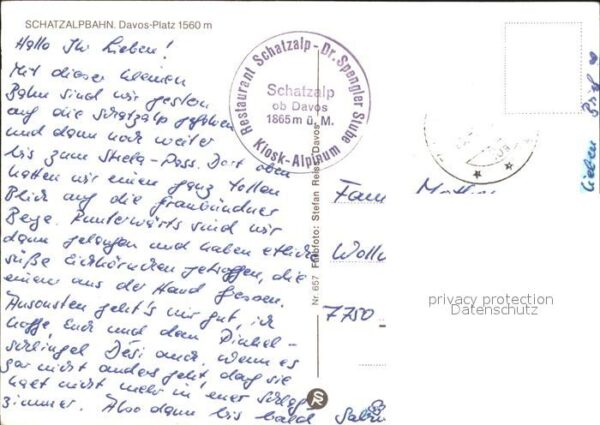 SCHATZALPBAHN. Davos-Platz 1560 m
Hallo Ihr Lieben!
Mit dieser kleinen
Bahn sind wir gestern
auf die Schatzalp gefahren
und dann noch weiter
bis zum Strela-Pass. Dort oben
hatten wir einen ganz tollen
Blick auf die Graubündner
Berge. Runterwärts sind wir
dann gelaufen und haben etliche
süße Eichhörnchen getroffen, die
einem aus der Hand fressen.
Ansonsten geht's mir gut, ich
hoffe, Euch und dem Pinkel-
schlingel Desi auch. Wenn es
gar nicht anders geht, darf sie
halt nicht mehr in euer Schlaf-
zimmer. Also dann bis bald
Restaurant Schatzalp - Dr. Spengler Stube
Kiosk-Alpinum
Schatzalp
ob Davos
1865 m ü. M.
Nr. 657 Farbfoto: Stefan Reiss, Davos
Fam
Woll
7750
lieben
privacy protection
Datenschutz